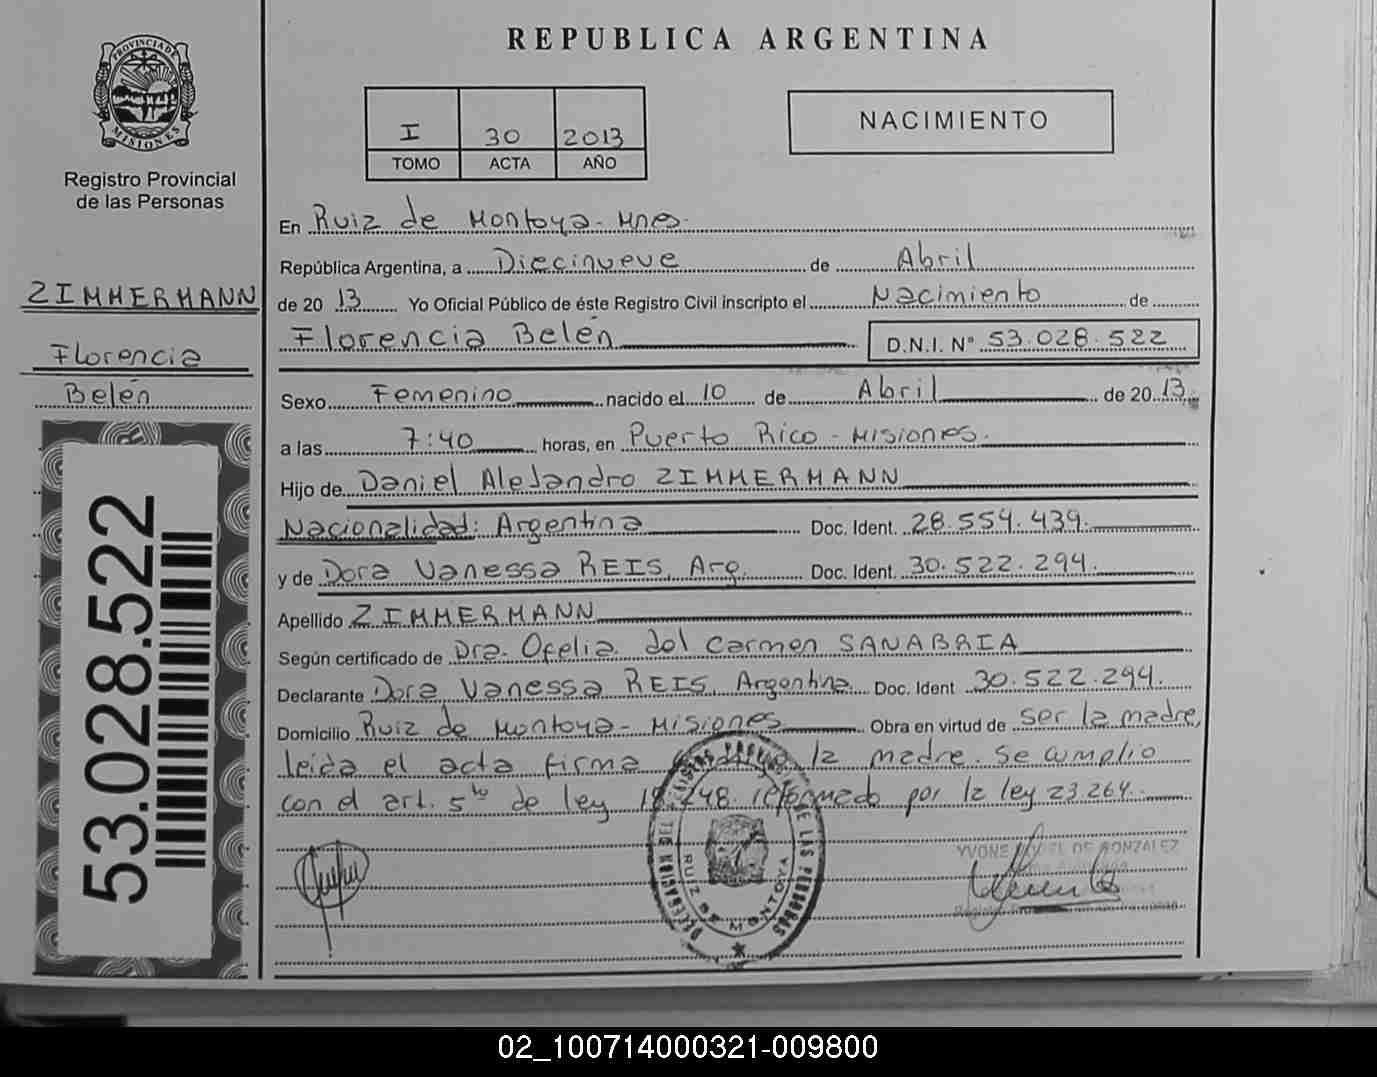 PROVINCIA DE
MISIONES
Registro Provincial
de las Personas
ZIMMERMANN
Florencia
Belén
53.028.522
REPUBLICA ARGENTINA
I 30 2013
TOMO ACTA AÑO
NACIMIENTO
En Ruiz de Montoya - Mnes.
República Argentina, a Diecinueve de Abril
de 2013 Yo Oficial Público de éste Registro Civil inscripto el Nacimiento de
Florencia Belén D.N.I. N° 53.028.522
Sexo Femenino nacido el 10 de Abril de 2013
a las 7:40 horas, en Puerto Rico - Misiones.
Hijo de Daniel Alejandro ZIMMERMANN
Nacionalidad: Argentina Doc. Ident. 28.554.439.
y de Dora Vanessa REIS, Arg. Doc. Ident. 30.522.294.
Apellido ZIMMERMANN
Según certificado de Dra. Ofelia del Carmen SANABRIA
Declarante Dora Vanessa REIS, Argentina Doc. Ident 30.522.294.
Domicilio Ruiz de Montoya - Misiones Obra en virtud de ser la madre,
leida el acta firma la madre. Se cumplio
con el art. 5to de ley 18.248. reformado por la ley 23.264.
DELEGACION DEL REGISTRO PROVINCIAL DE LAS PERSONAS
RUIZ DE MONTOYA
YVONE DE GONZALEZ
02_100714000321-009800